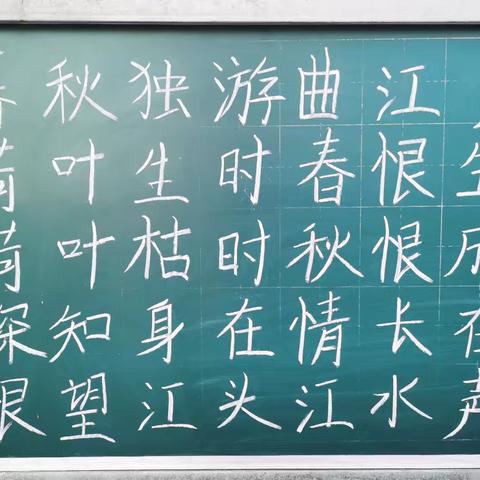 秋独游曲江
荷叶生时春恨生
荷叶枯时秋恨成
深知身在情长在
望江头江水声